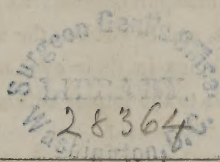 Surgeon Gen'ls Office
LIBRARY.
28364
Washington, D.C.